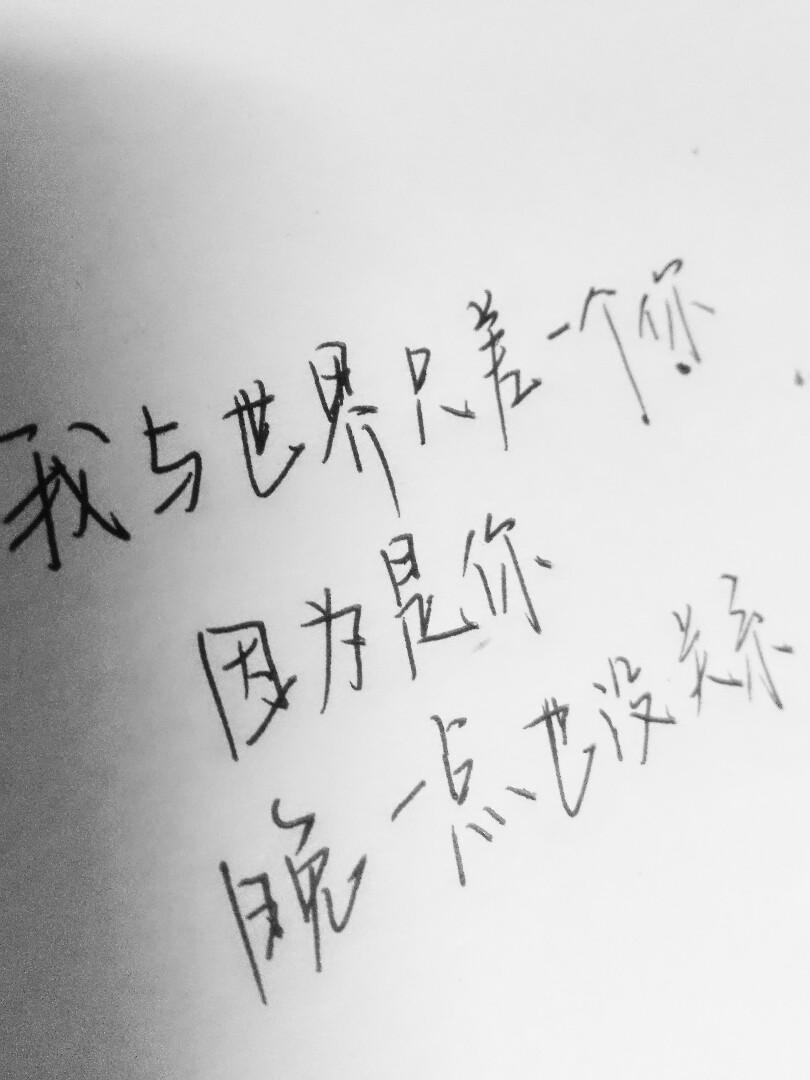 我与世界只差一个你
因为是你
晚一点也没关系